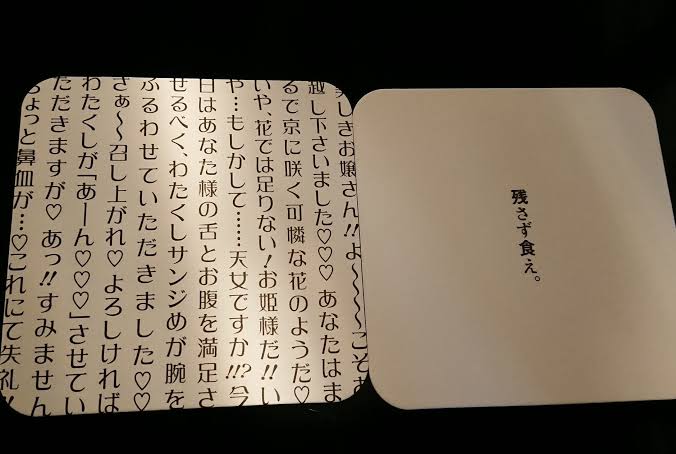 美しきお嬢さん!!よ〜〜〜〜こそお
越し下さいました♡♡ あなたはま
るで京に咲く可憐な花のようだ♡
いや、花では足りない!お姫様だ!!い
や…もしかして……天女ですか!!?今
日はあなた様の舌とお腹を満足さ
せるべく、わたくしサンジめが腕を
ふるわせていただきました♡♡
さぁ〜〜召し上がれ♡よろしければ
わたくしが「あーん♡♡♡」させてい
ただきますが♡ あっ!!すみません
ちょっと鼻血が…♡これにて失礼!!
残さず食え。